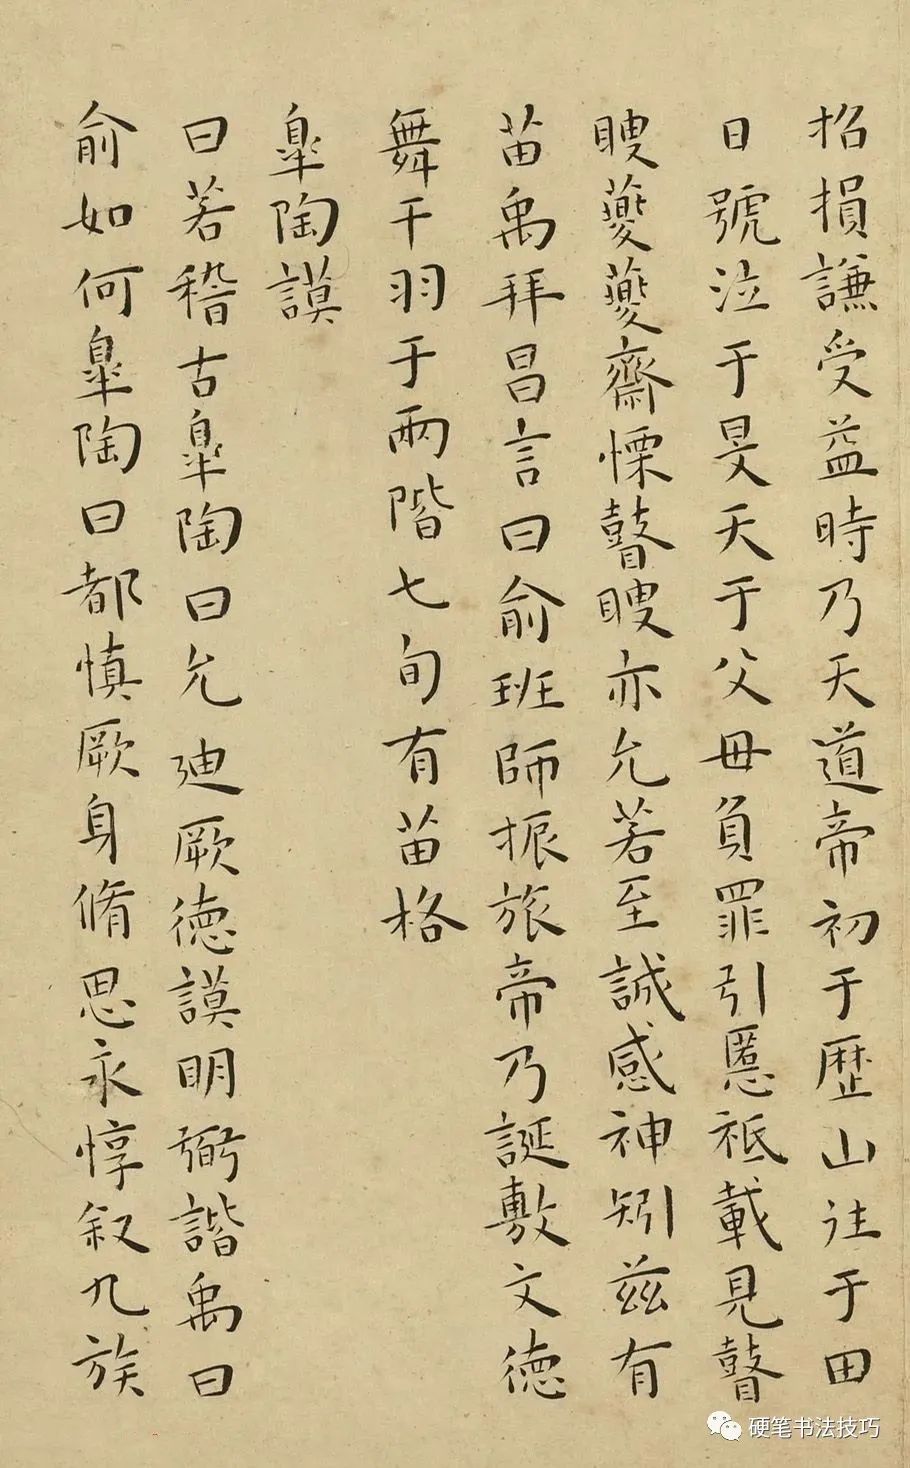 招損謙受益時乃天道帝初于歷山往于田
日號泣于旻天于父母負罪引慝祗載見瞽
瞍夔夔齋慄瞽瞍亦允若至諴感神矧茲有
苗禹拜昌言曰俞班師振旅帝乃誕敷文德
舞干羽于兩階七旬有苗格
皐陶謨
曰若稽古皐陶曰允迪厥德謨明弼諧禹曰
俞如何皐陶曰都慎厥身脩思永惇叙九族
硬笔书法技巧